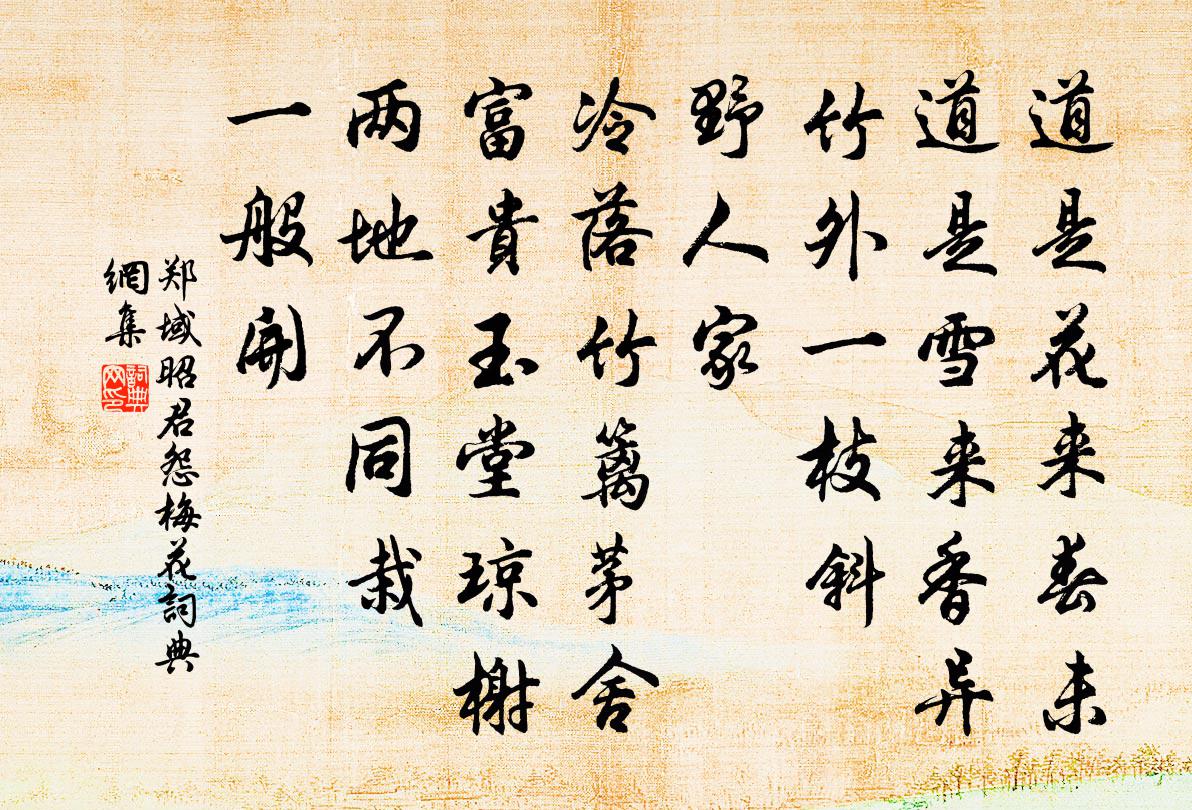 道是花来春未
道是雪来香异
竹外一枝斜
野人家
冷落竹篱茅舍
富貴玉堂琼榭
两地不同栽
一般開
郑域昭君怨梅花詞典
網集
詞典网印